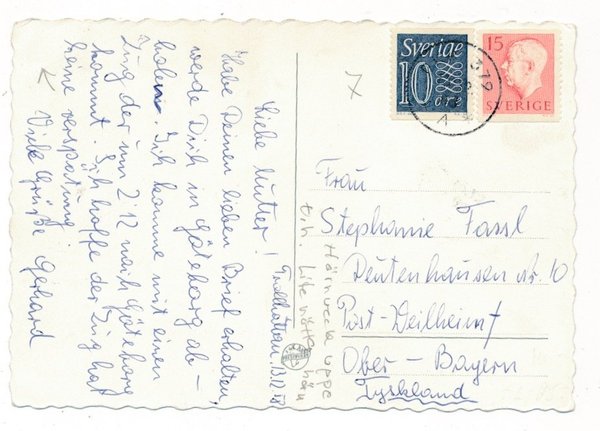 Trollhättan, 13.12.58
Liebe Mutter!
Habe Deinen lieben Brief erhalten,
werde Dich in Göteborg ab-
holen. Ich komme mit einen
Zug der um 2.12 nach Göteborg
kommt. Ich hoffe der Zug hat
keine verspätung.
Viele Grüße Gerhard
Sverige
10
öre
15
SVERIGE
Frau
Stephanie Fassl
Deutenhausen nr. 10
Post-Weilheim
Ober-Bayern
Tyskland
uppe
t.h.